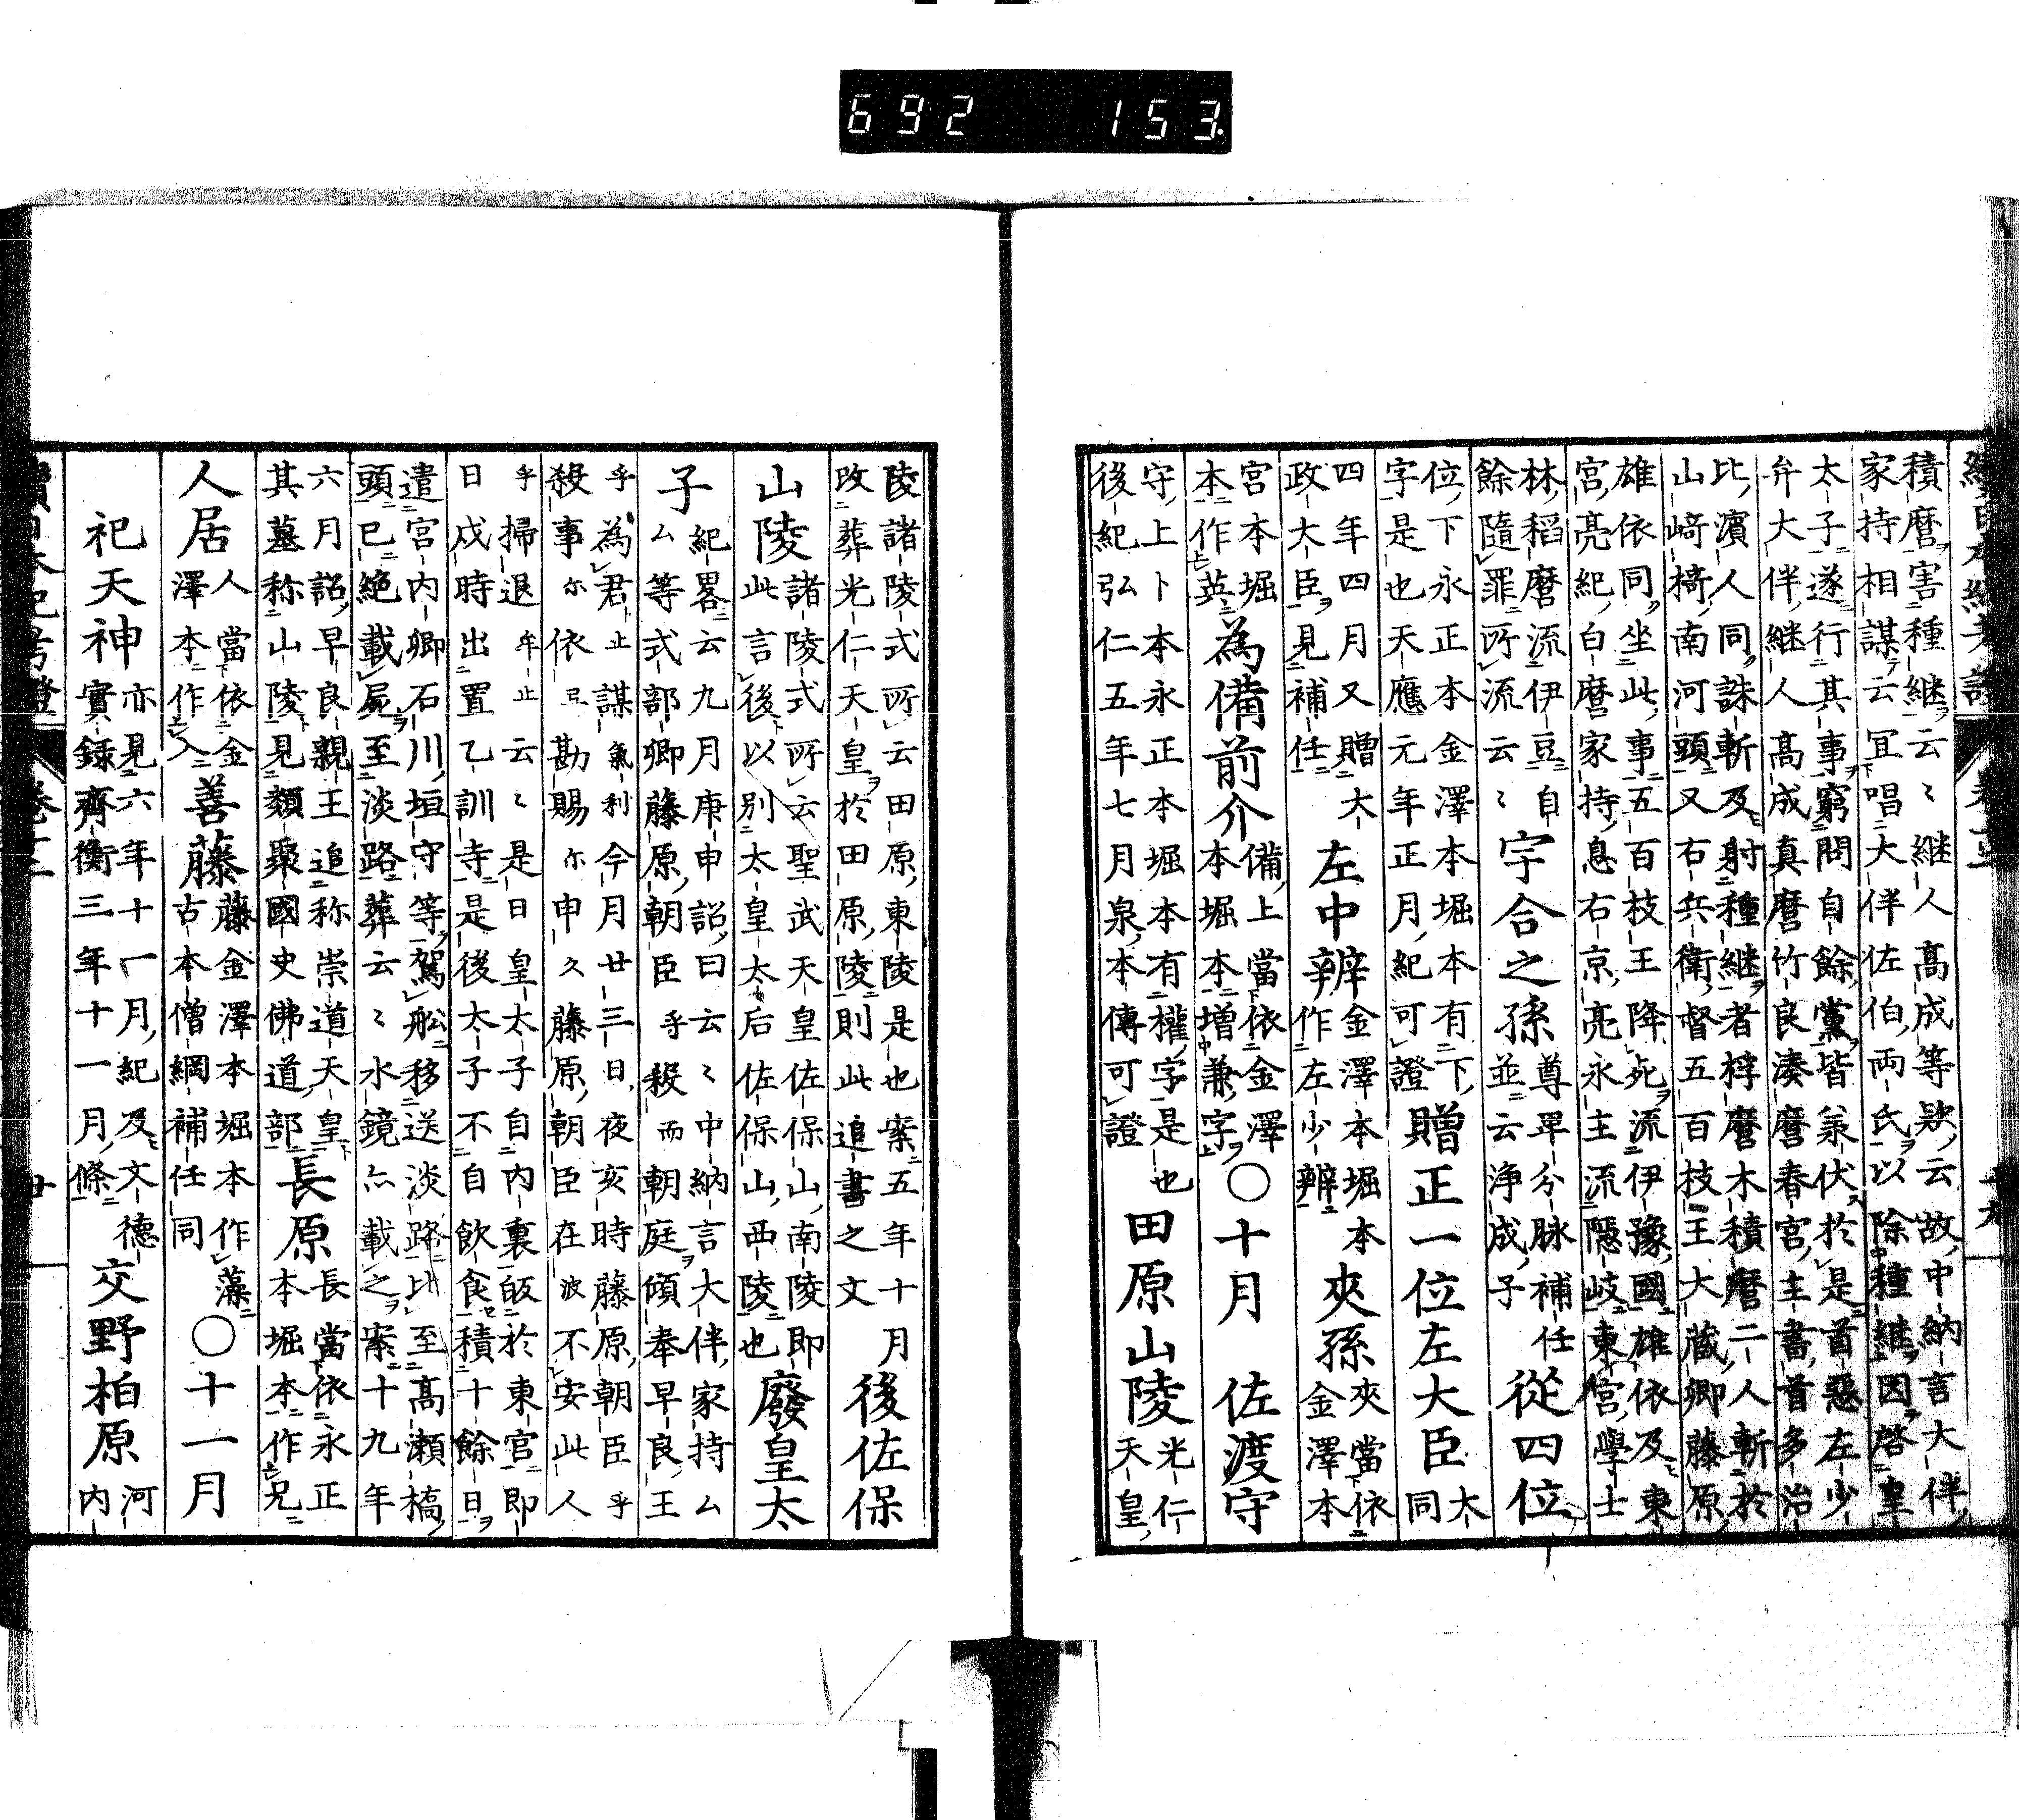 692 153.
積麿害種継云〻継人高成等款云故中納言大伴
家持相謀云冝唱大伴佐伯両氏以除種継因啓皇
太子遂行其事窮問自餘黨皆羕伏於是首惡左少
弁大伴継人高成真麿竹良湊麿春宮主書首多治
比濱人同誅斬及射種継者桴麿木積麿二人斬於
山﨑椅南河頭又右兵衛督五百枝王大蔵卿藤原
雄依同坐此事五百枝王降死流伊豫國雄依及東
宮亮紀白麿家持息右京亮永主流隱岐東宮學士
林稻麿流伊豆自
餘隨罪所流云〻
宇合之孫
尊卑分脉補任
並云浄成子
從四位
位下永正本金澤本堀本有下
字是也天應元年正月紀可證
贈正一位左大臣
太
同
四年四月又贈大
政大臣見補任
左中辨
金澤本堀本
作左少辨
夾孫
夾當依
金澤本
宮本堀
本作英
為備前介
備上當依金澤
本堀本増兼字
〇十月
佐渡守
守上卜本永正本堀本有權字是也
後紀弘仁五年七月泉本傳可證
田原山陵
光仁
天皇
陵諸陵式所云田原東陵是也案五年十月
改葬光仁天皇於田原陵則此追書之文
後佐保
山陵
諸陵式所云聖武天皇佐保山南陵即
此言後以別太皇太后佐保山西陵也
廢皇太
子
紀畧云九月庚申詔曰云〻中納言大伴家持ム
ム等式部卿藤原朝臣乎殺而朝庭傾奉早良王
乎為君止謀氣利今月廿三日夜亥時藤原朝臣乎
殺事尓依弖勘賜尓申久藤原朝臣在波不安此人
乎掃退牟止云〻是日皇太子自内裏皈於東宮即
日戍時出置乙訓寺是後太子不自飲食積十餘日
遣宮内卿石川垣守等駕舩移送淡路比至高瀬橋
頭已絶載屍至淡路葬云〻水鏡亦載之案十九年
六月詔早良親王追称崇道天皇
其墓称山陵見類聚國史佛道部
長原
長當依永正
本堀本作兄
人居
人當依金
澤本作入
善藤
藤金澤本堀本作藻
古本僧綱補任同
〇十一月
祀天神
亦見六年十一月紀及文德
實録齊衡三年十一月條
交野柏原
河
内